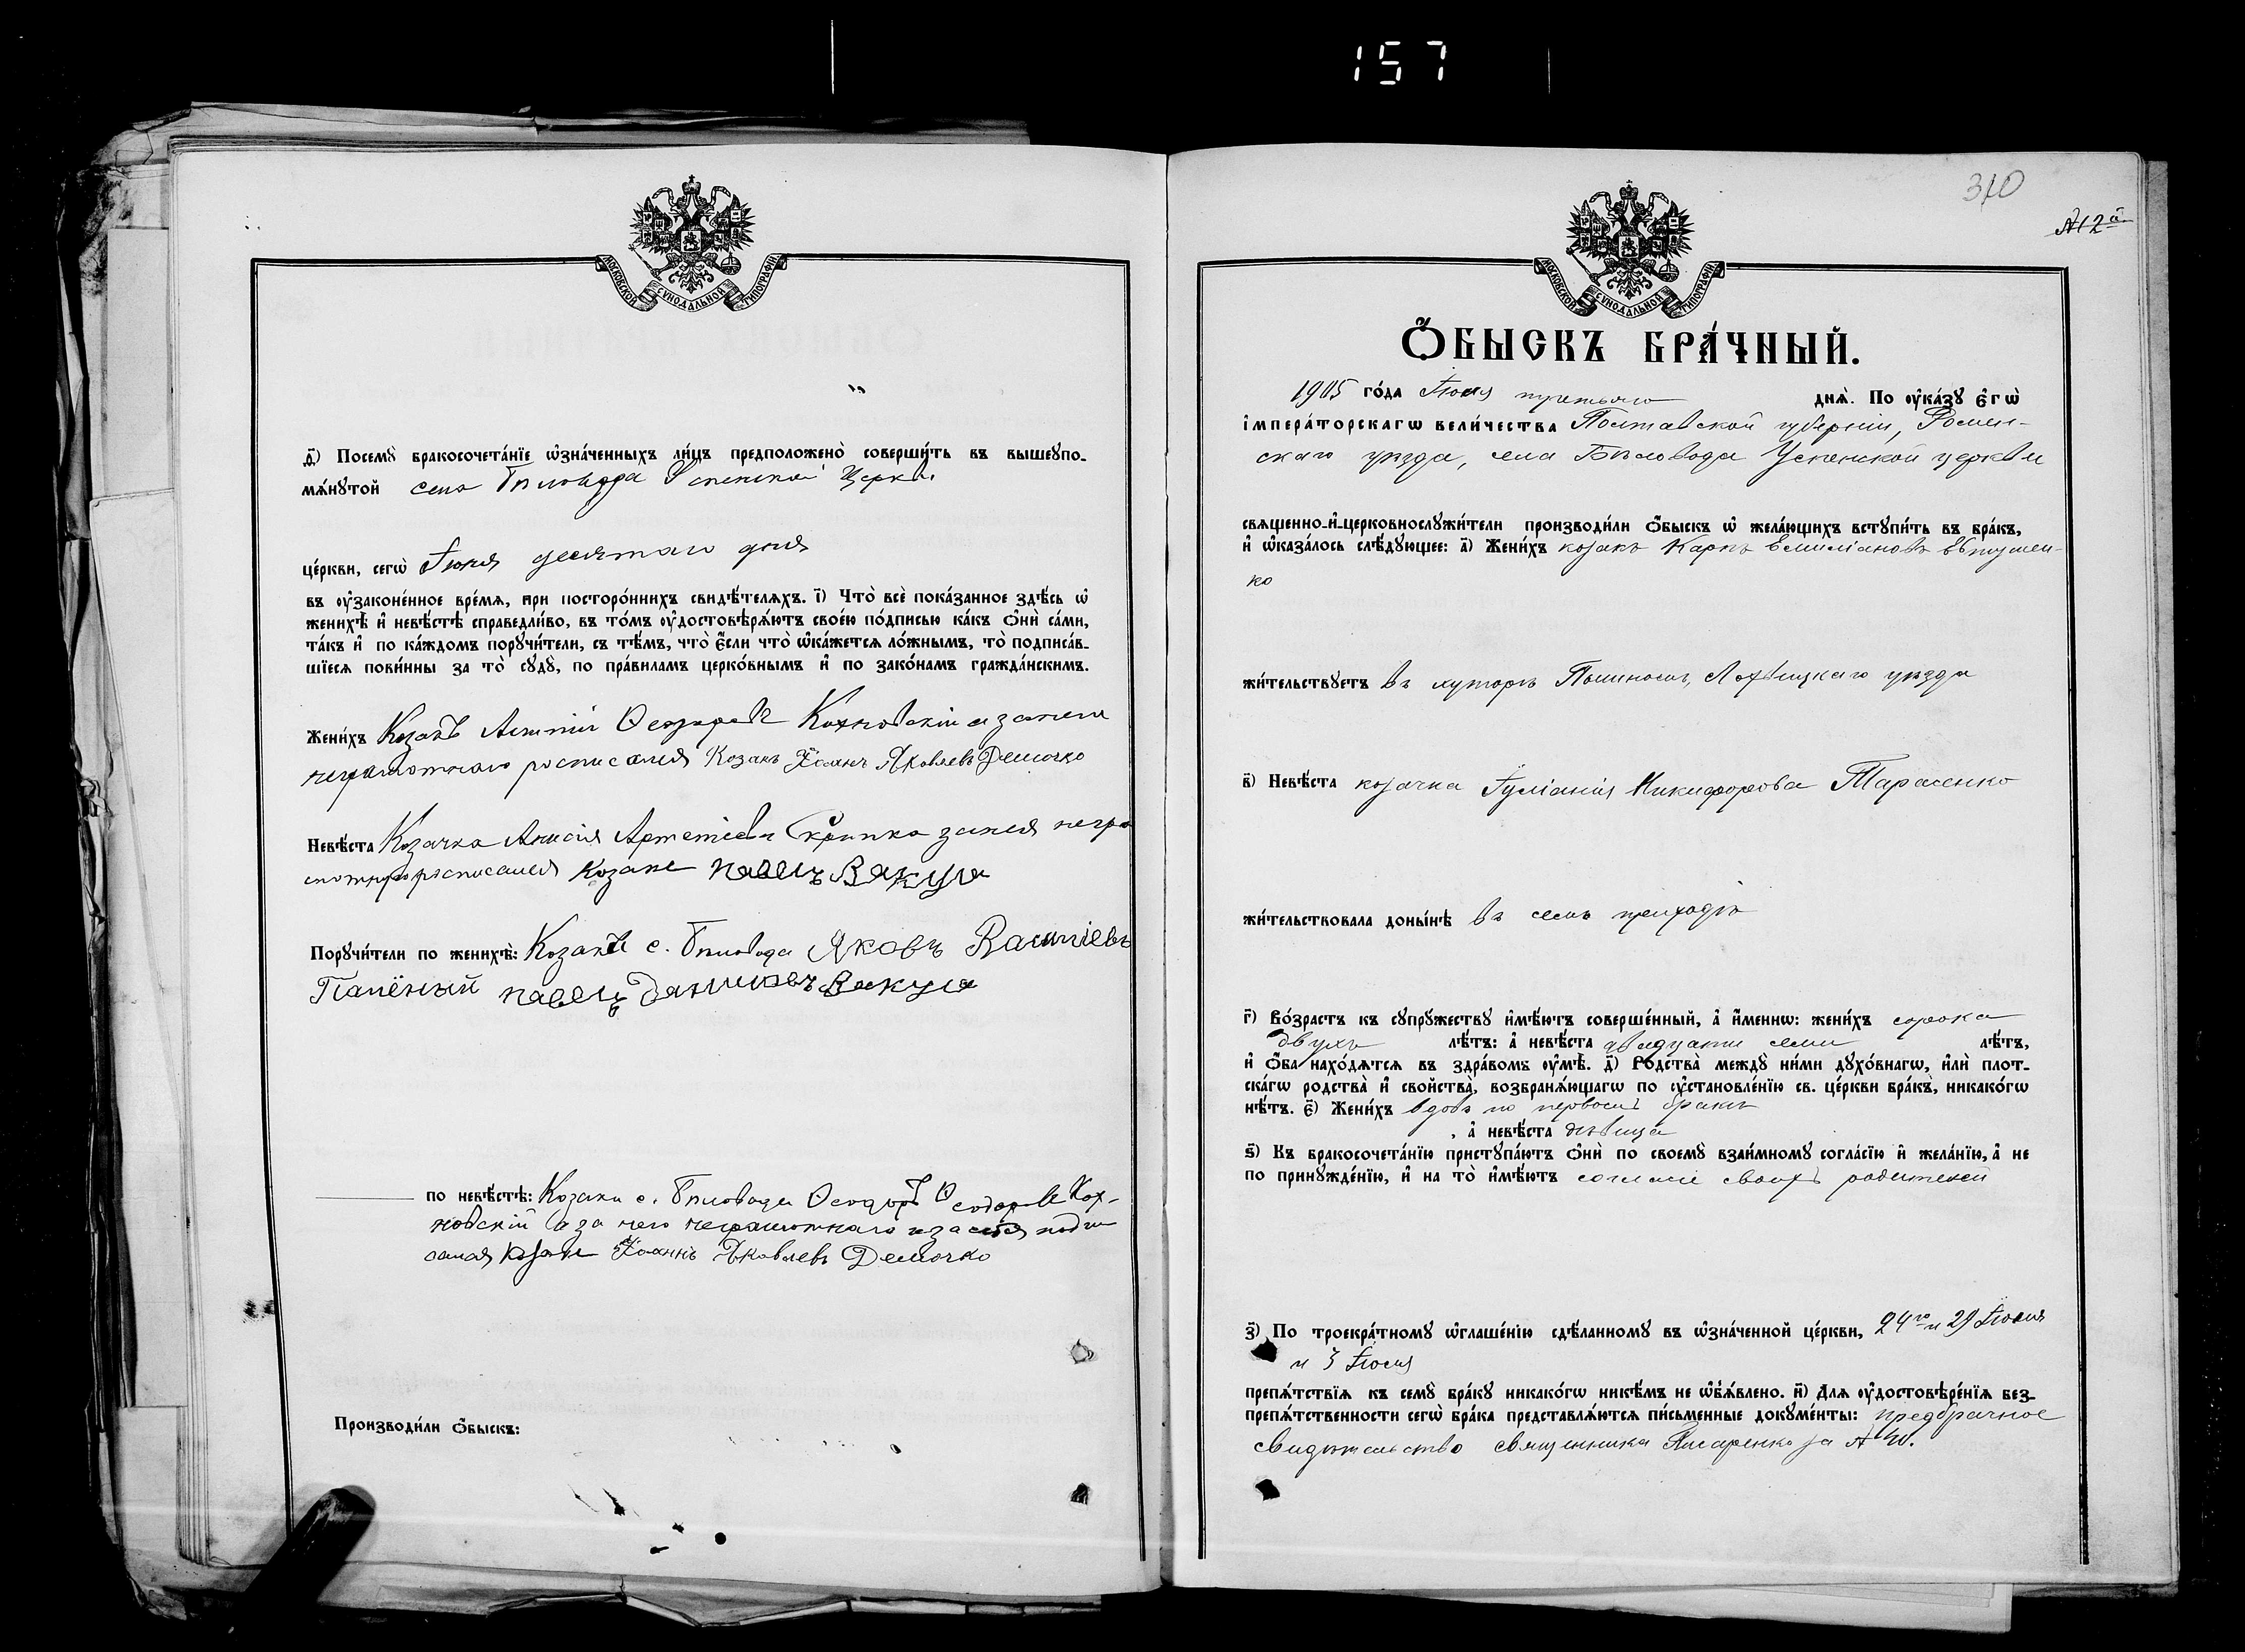 157
МОСКОВСКОЙ СУНОДАЛЬНОЙ ТИПОГРАФІИ
д҃) Посемꙋ̀ бракосочета́нїе ѡ҆зна́ченныхъ ли́цъ предположено̀ соверши́ть въ вышеꙋпо-
мѧ́нꙋтой села Бѣловода Успенской Церкви
це́ркви, сегѡ̀ Іюня десятаго дня
въ ᲂу҆законе́нное вре́мѧ, при посторо́ннихъ свидѣ́телѧхъ. і҃) Что̀ всѐ пока́занное здѣ́сь ѡ҆
женихѣ̀ и҆ невѣ́стѣ справедли́во, въ то́мъ ᲂу҆достовѣрѧ́ютъ свое́ю по́дписью ка́къ ѻ҆нѝ са́ми,
та́къ и҆ по ка́ждомъ порꙋчи́тели, съ тѣ́мъ, что̀ є҆́сли что̀ ѡ҆ка́жетсѧ ло́жнымъ, то̀ подписа́в-
шїесѧ пови́нны за то̀ сꙋдꙋ̀, по пра́виламъ церко́внымъ и҆ по зако́намъ гражда́нскимъ.
Жени́хъ Козакъ Ѳеодоровъ Кохновскій а за него
неграмотнаго росписался Козакъ Іоаннъ Яковлевъ Демочко
Невѣ́ста Козачка Анисія Артеміева Скрипка за нея негра
мотную росписался Козакъ Павелъ Вакула
Порꙋчи́тели по женихѣ̀: Козаки с. Бѣловода Яковъ Василіевъ
Палёный Павелъ Даниловъ Вакула
по невѣ́стѣ: Козаки с. Бѣловода Ѳеодоръ Ѳеодоровъ Кох-
новскій а за него неграмотнаго и за себя подпи
сался Козакъ Іоаннъ Яковлевъ Демочко
Производи́ли ѻ҆́быскъ:
310
№ 12й
МОСКОВСКОЙ СУНОДАЛЬНОЙ ТИПОГРАФІИ
Ѻ҆́БЫСКЪ БРА́ЧНЫЙ.
1905 го́да Іюля третьяго днѧ̀. По ᲂу҆ка́зꙋ є҆гѡ̀
і҆мпера́торскагѡ вели́чества Полтавской губерніи, Ромен-
скаго уѣзда, села Бѣловода Успенской церкви
свѧщенно-и҆-церковнослꙋжи́тели производи́ли ѻ҆́быскъ ѡ҆ жела́ющихъ встꙋпи́ть въ бра́къ,
и҆ ѡ҆каза́лось слѣ́дꙋющее: а҃) Жени́хъ козакъ Карпъ Емиліановъ Евтушен-
ко
жи́тельствꙋетъ въ хуторѣ Лохвицкаго уѣзда
в҃) Невѣ́ста козачка Іуліанія Никифорова Тарасенко
жи́тельствовала доны́нѣ въ семъ приходѣ
г҃) Во́зрастъ къ сꙋпрꙋ́жествꙋ и҆мѣ́ютъ соверше́нный, а҆ и҆́меннѡ: жени́хъ сорока
двухъ лѣ́тъ: а҆ невѣ́ста двадцати семи лѣ́тъ,
и҆ ѻ҆́ба нахо́дѧтсѧ въ здра́вомъ ᲂу҆мѣ̀. д҃) Родства̀ междꙋ̀ ни́ми дꙋхо́внагѡ, и҆лѝ плот-
ска́гѡ родства̀ и҆ свойства̀, возбранѧ́ющагѡ по ᲂу҆становле́нїю св. це́ркви бра́къ, никако́гѡ
нѣ́тъ. є҃) Жени́хъ вдовъ по первомъ бракѣ
, а҆ невѣ́ста дѣвица
ѕ҃) Къ бракосочета́нїю пристꙋпа́ютъ ѻ҆нѝ по своемꙋ̀ взаи́мномꙋ согла́сїю и҆ жела́нїю, а҆ не
по принꙋжде́нїю, и҆ на то̀ и҆мѣ́ютъ согласіе своихъ родителей
з҃) По троекра́тномꙋ ѡ҆глаше́нїю сдѣ́ланномꙋ въ ѡ҆зна́ченной це́ркви, 24го и 29 Іюня
и 3 Іюля
препѧ́тствїѧ къ семꙋ̀ бра́кꙋ никако́гѡ никѣ́мъ не ѡ҆б̾ѧ́влено. и҃) Длѧ ᲂу҆достовѣре́нїѧ без-
препѧ́тственности сегѡ̀ бра́ка представлѧ́ютсѧ пи́сьменные докꙋме́нты: предбрачное
свидѣтельство священника Писаренко за №